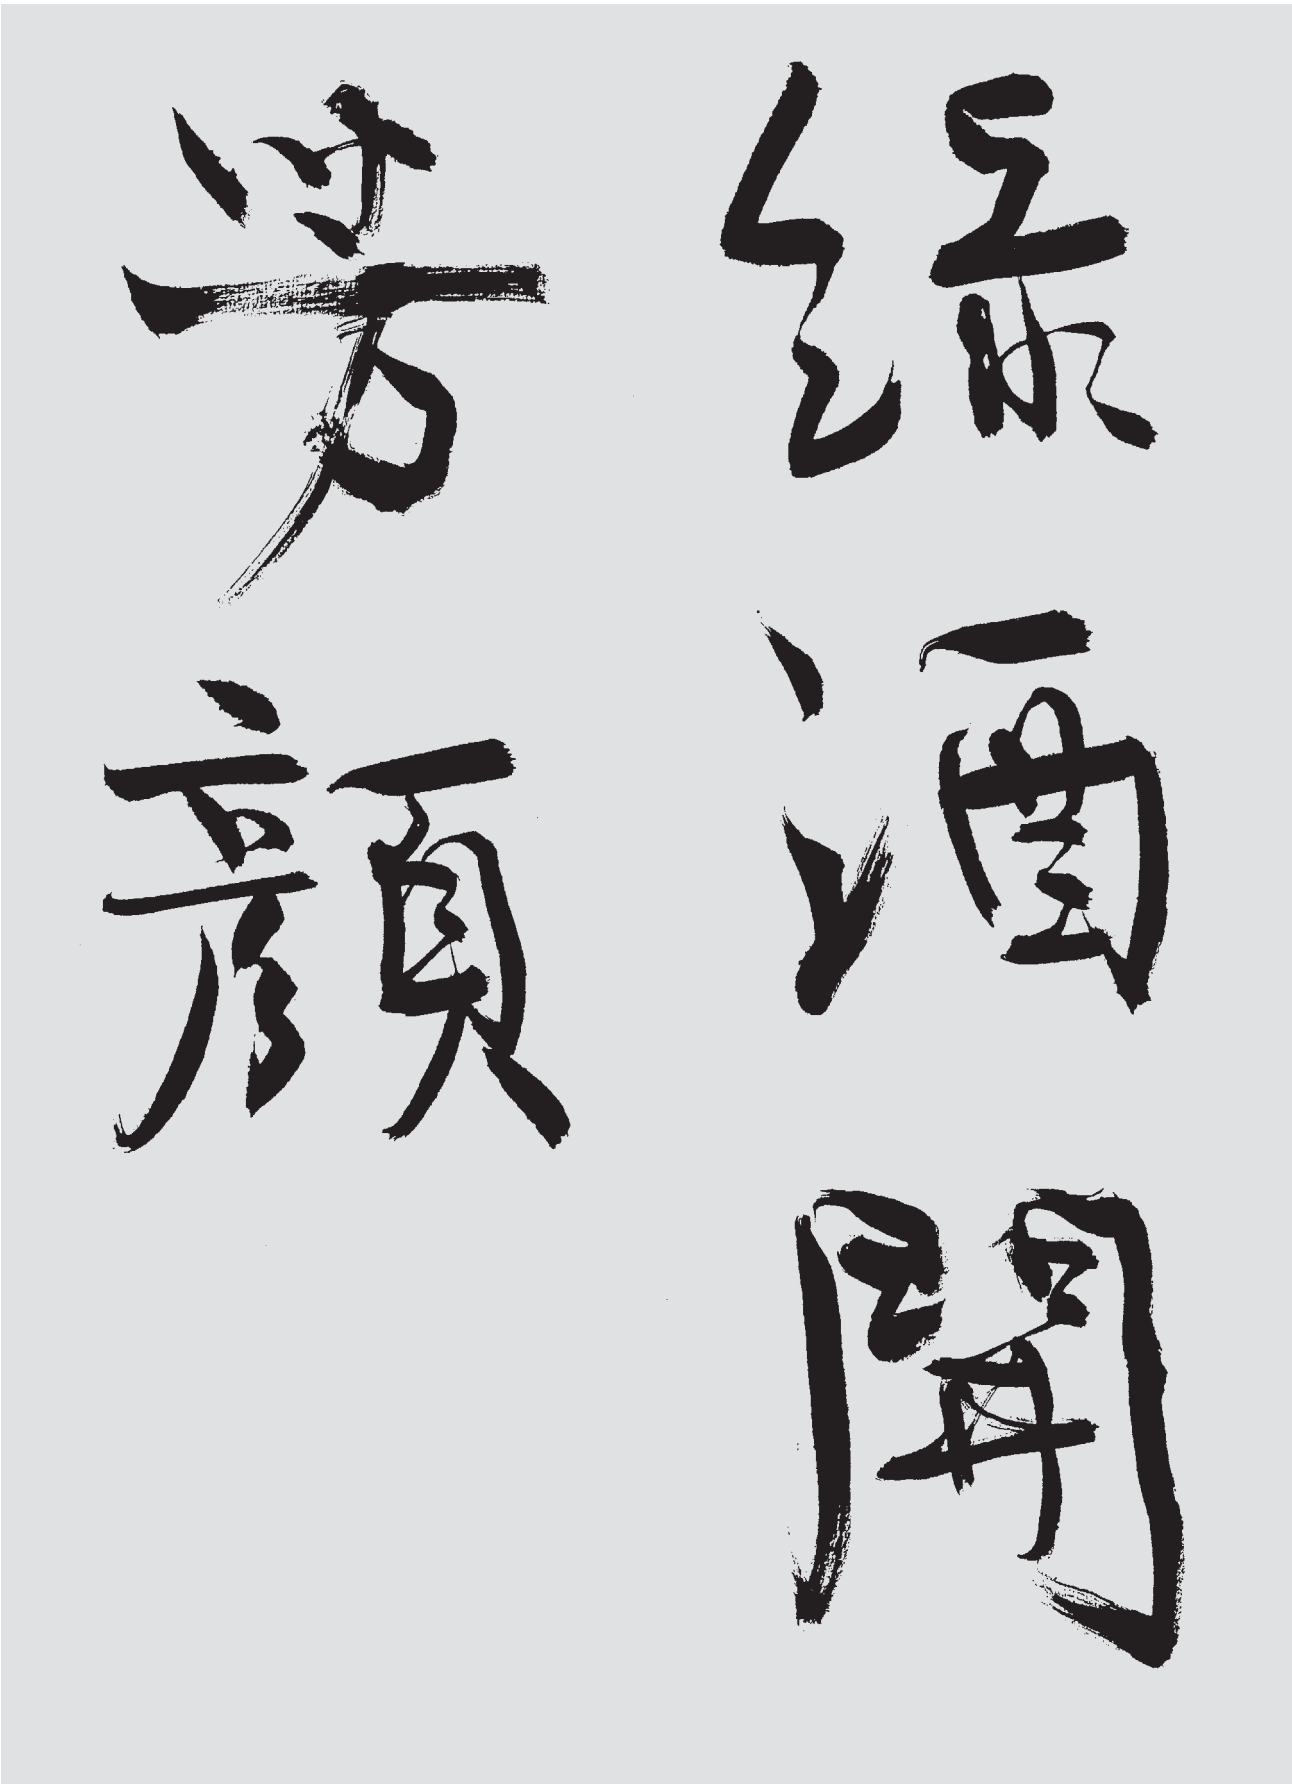 緑酒開
芳顔